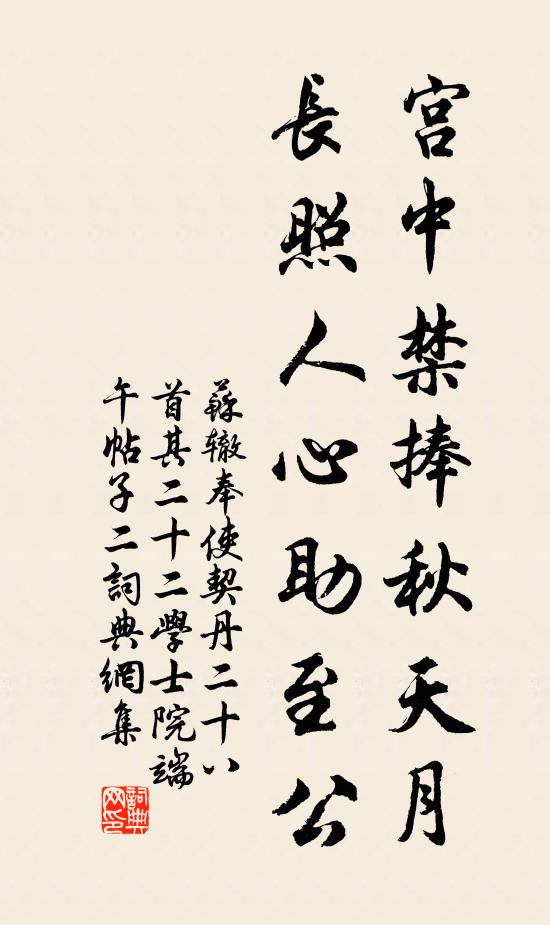 宮中禁捧秋天月
長照人心助至公
蘇轍奉使契丹二十八
首其二十二學士院端
午帖子二詞典網集
詞典
网印